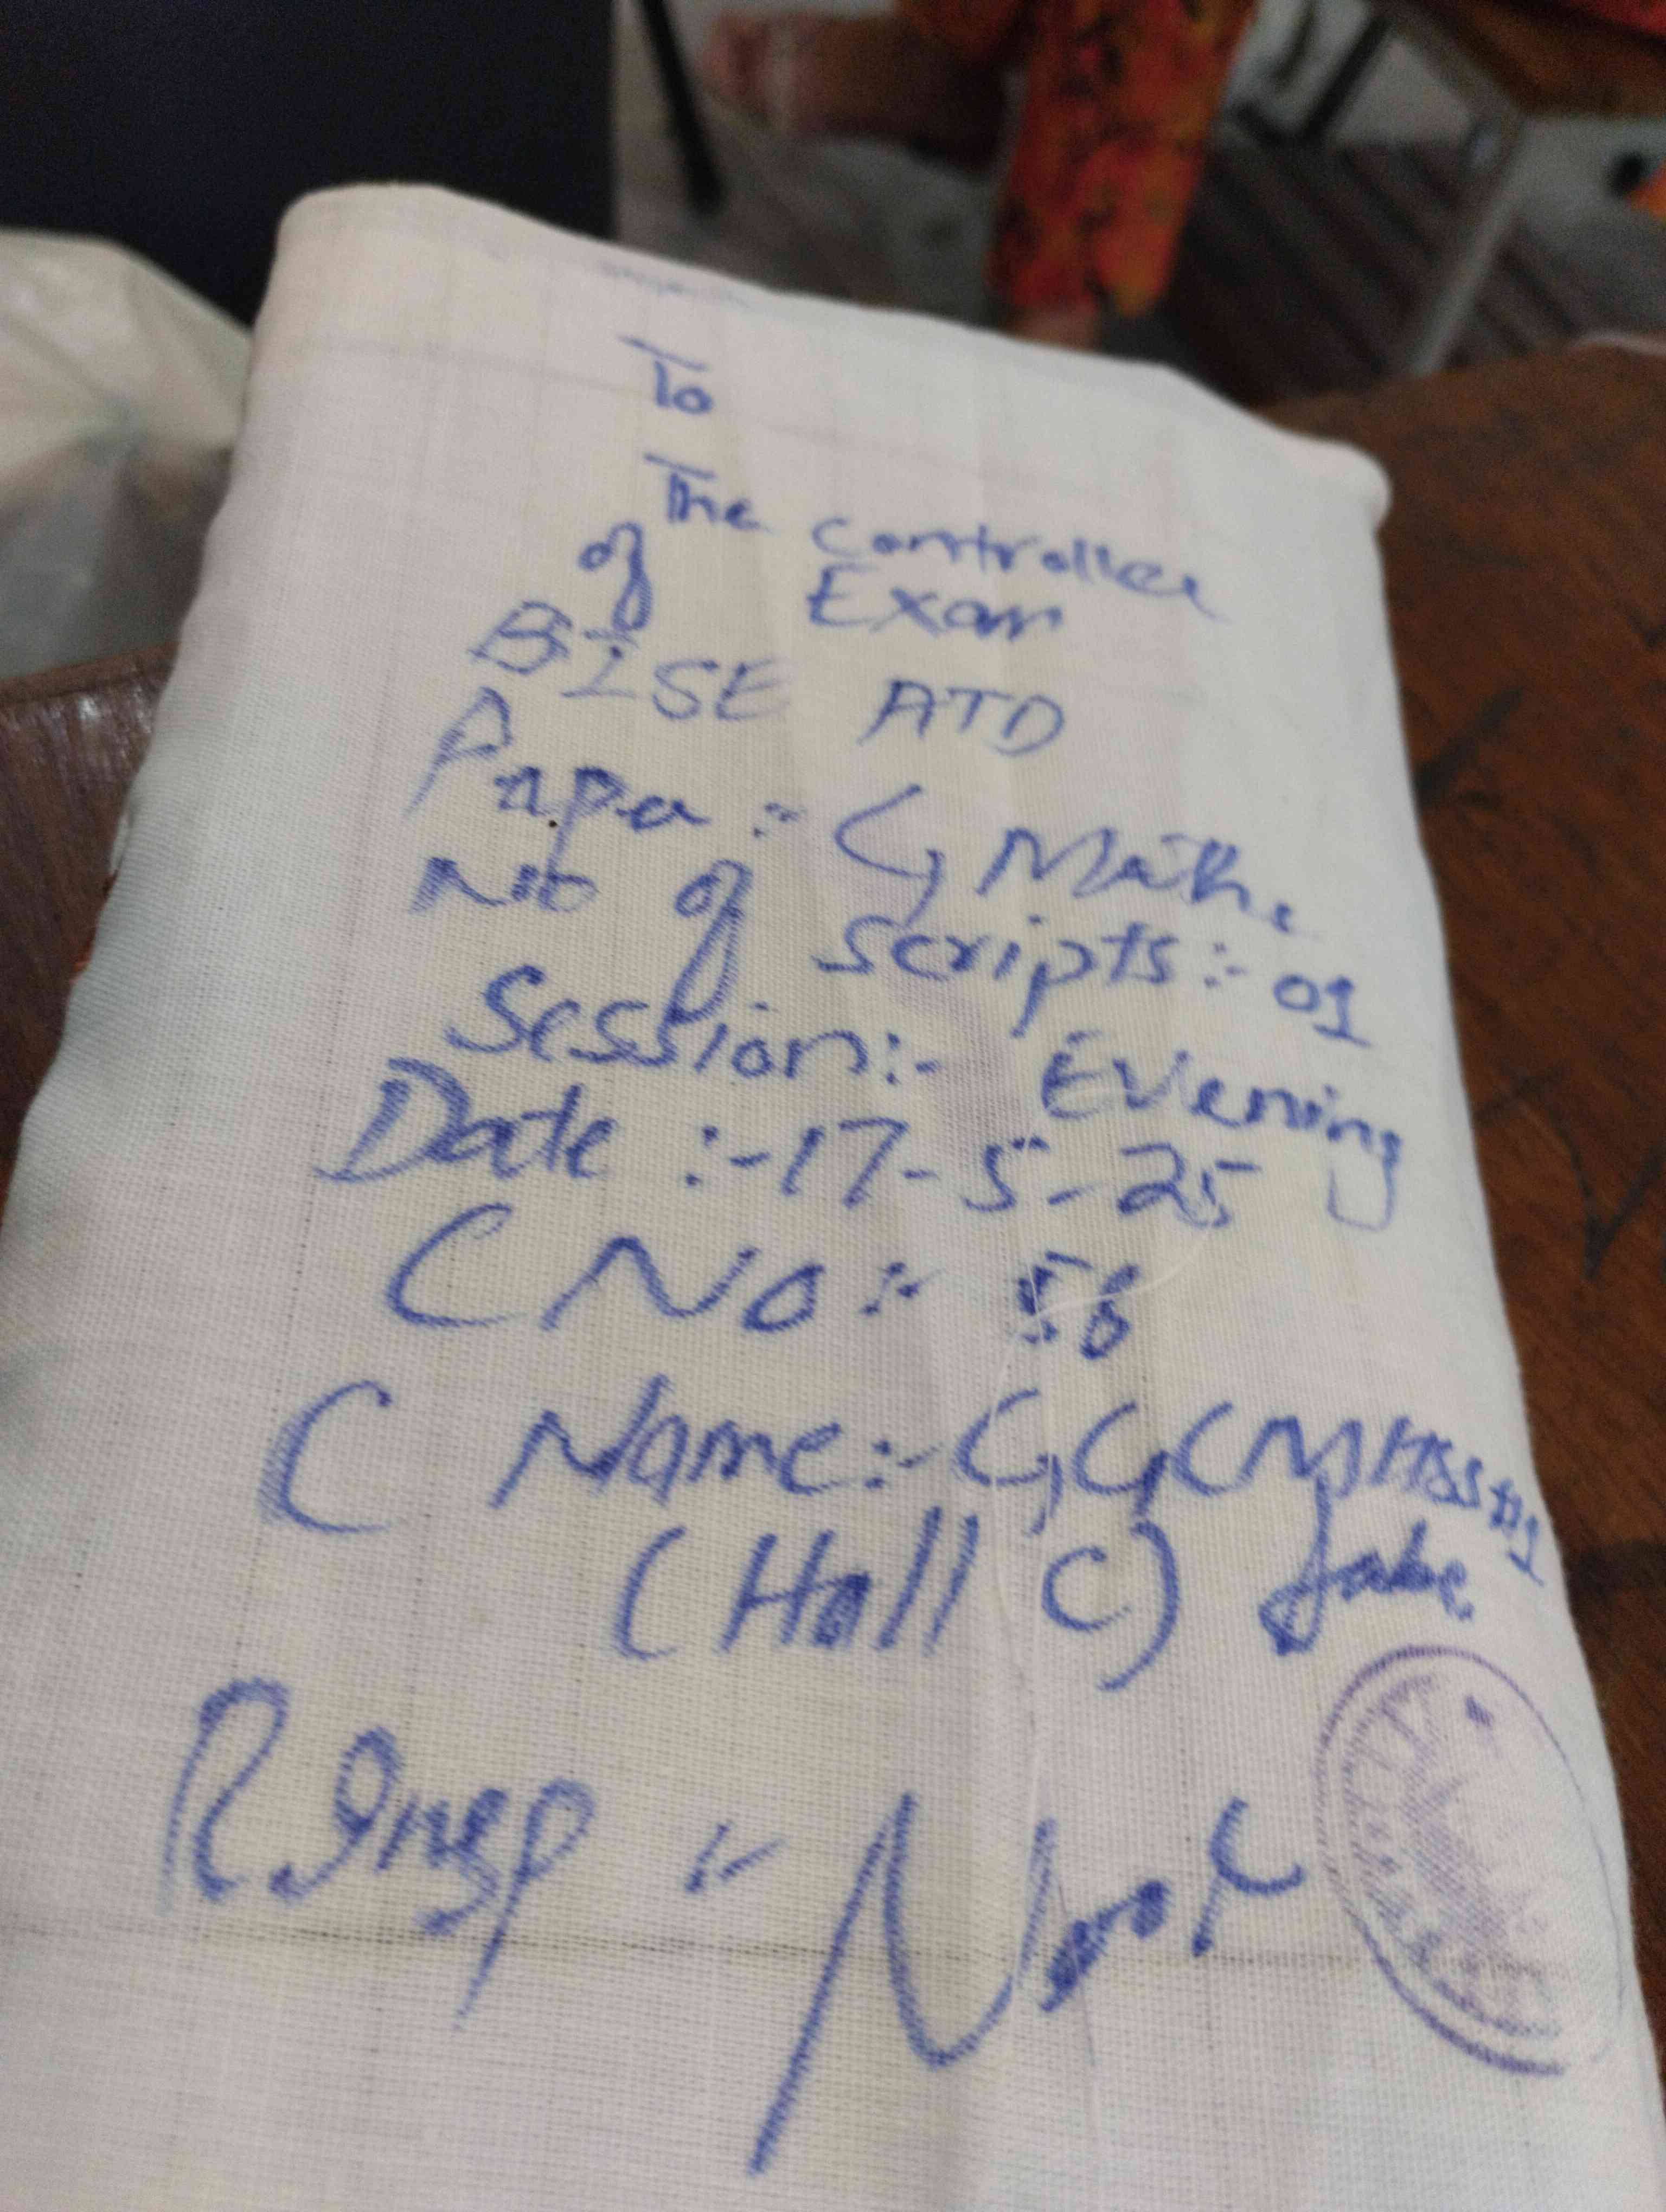 To
The Controller
of Exam
BISE ATD
Paper :- G, Maths
No of Scripts :- 01
Session :- Evening
Date :- 17-5-25
C No :- 58
C Name :- G, G, CMHSS No 1
(Hall C)
R.Insp :-